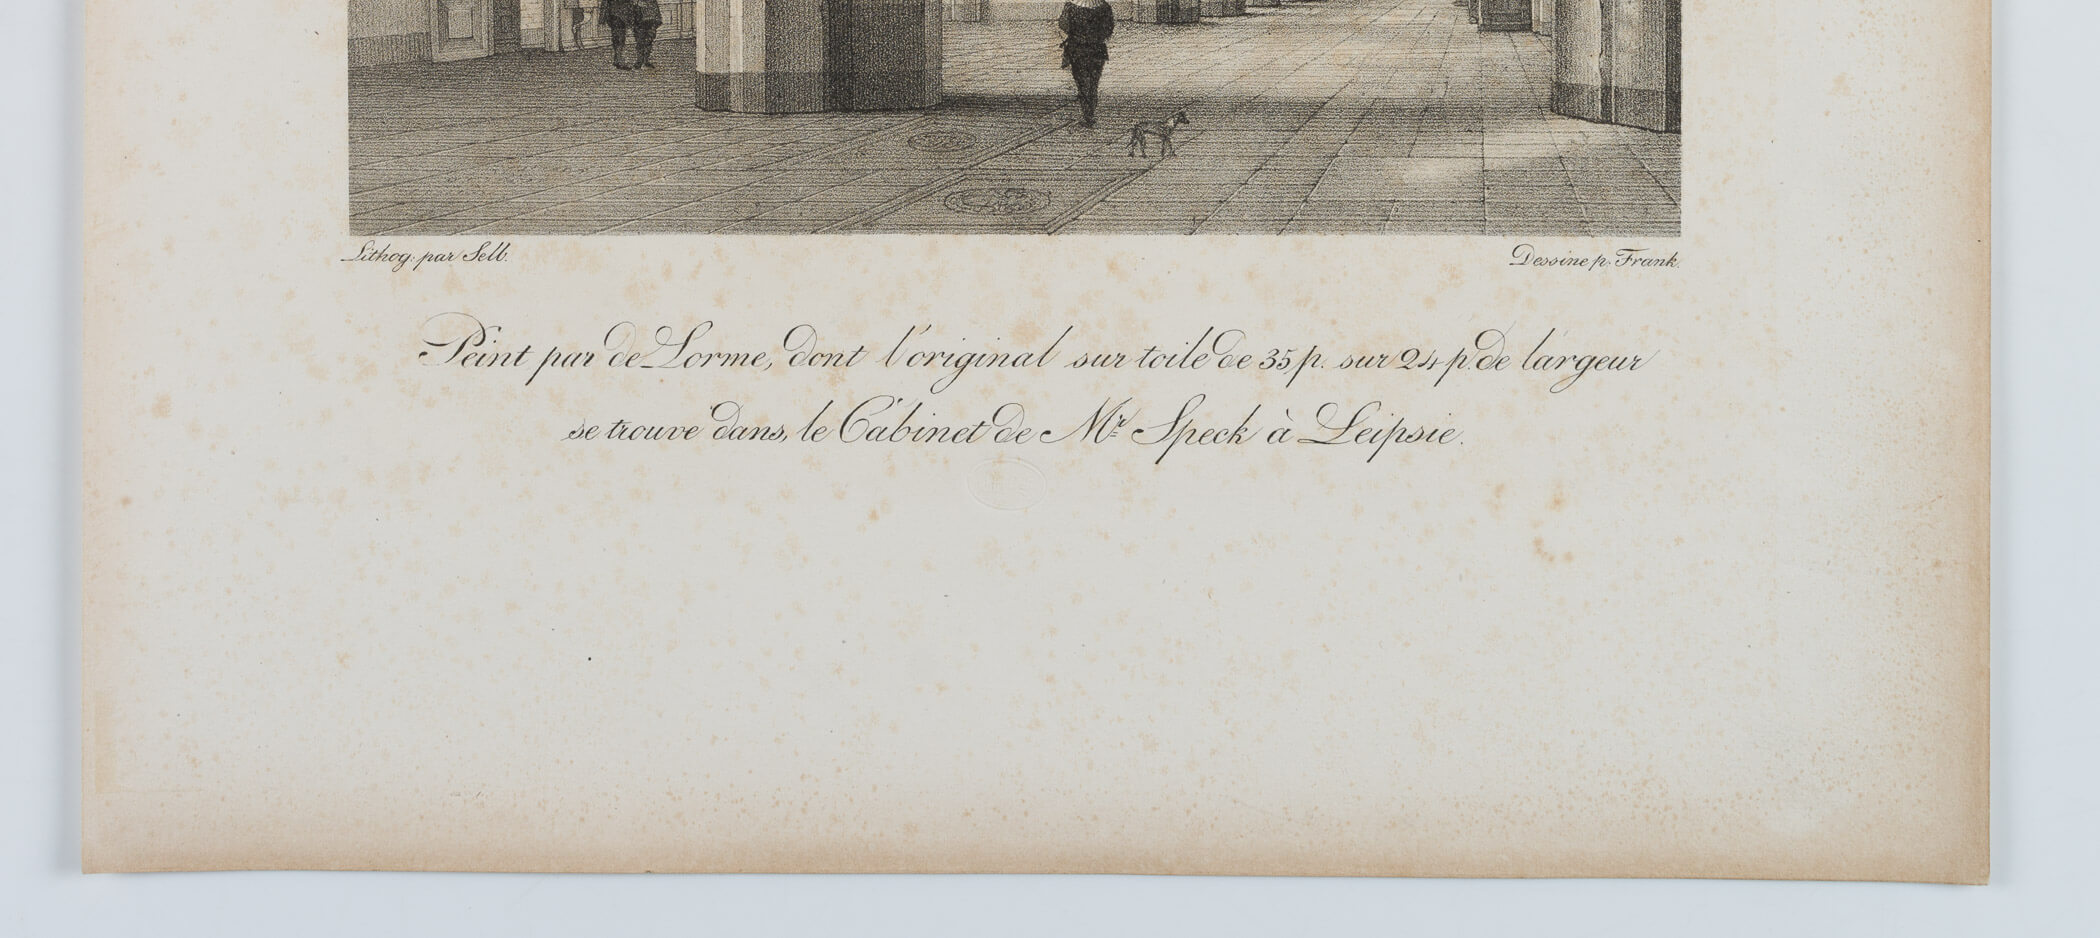 Lithog. par Selb.
Dessine p. Frank.
Peint par de Lorme, dont l'original sur toile de 35 p. sur 24 p. de largeur
se trouve dans le Cabinet de Mr. Speck à Leipsie.